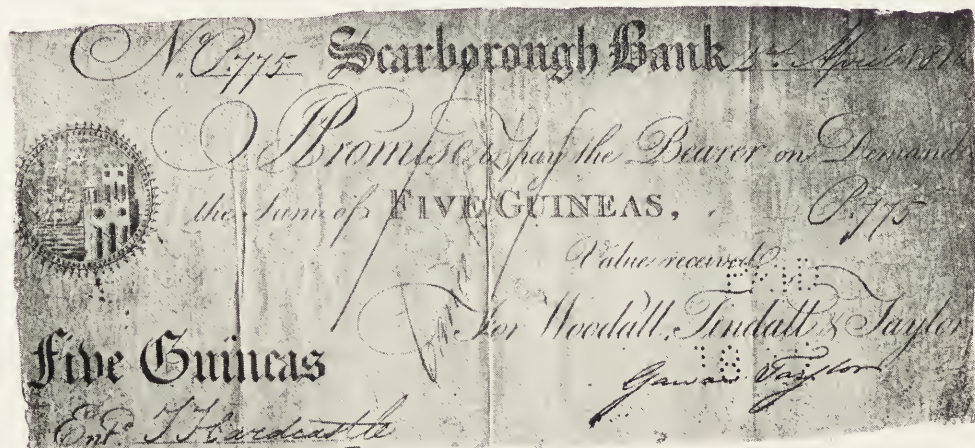 No. P.775 Scarborough Bank 2d. April 181
I Promise to pay the Bearer on Demand
the Sum of FIVE GUINEAS,
P.775
Value received
For Woodall, Tindall & Taylor
Five Guineas
Taylor
Entd. Hardcastle